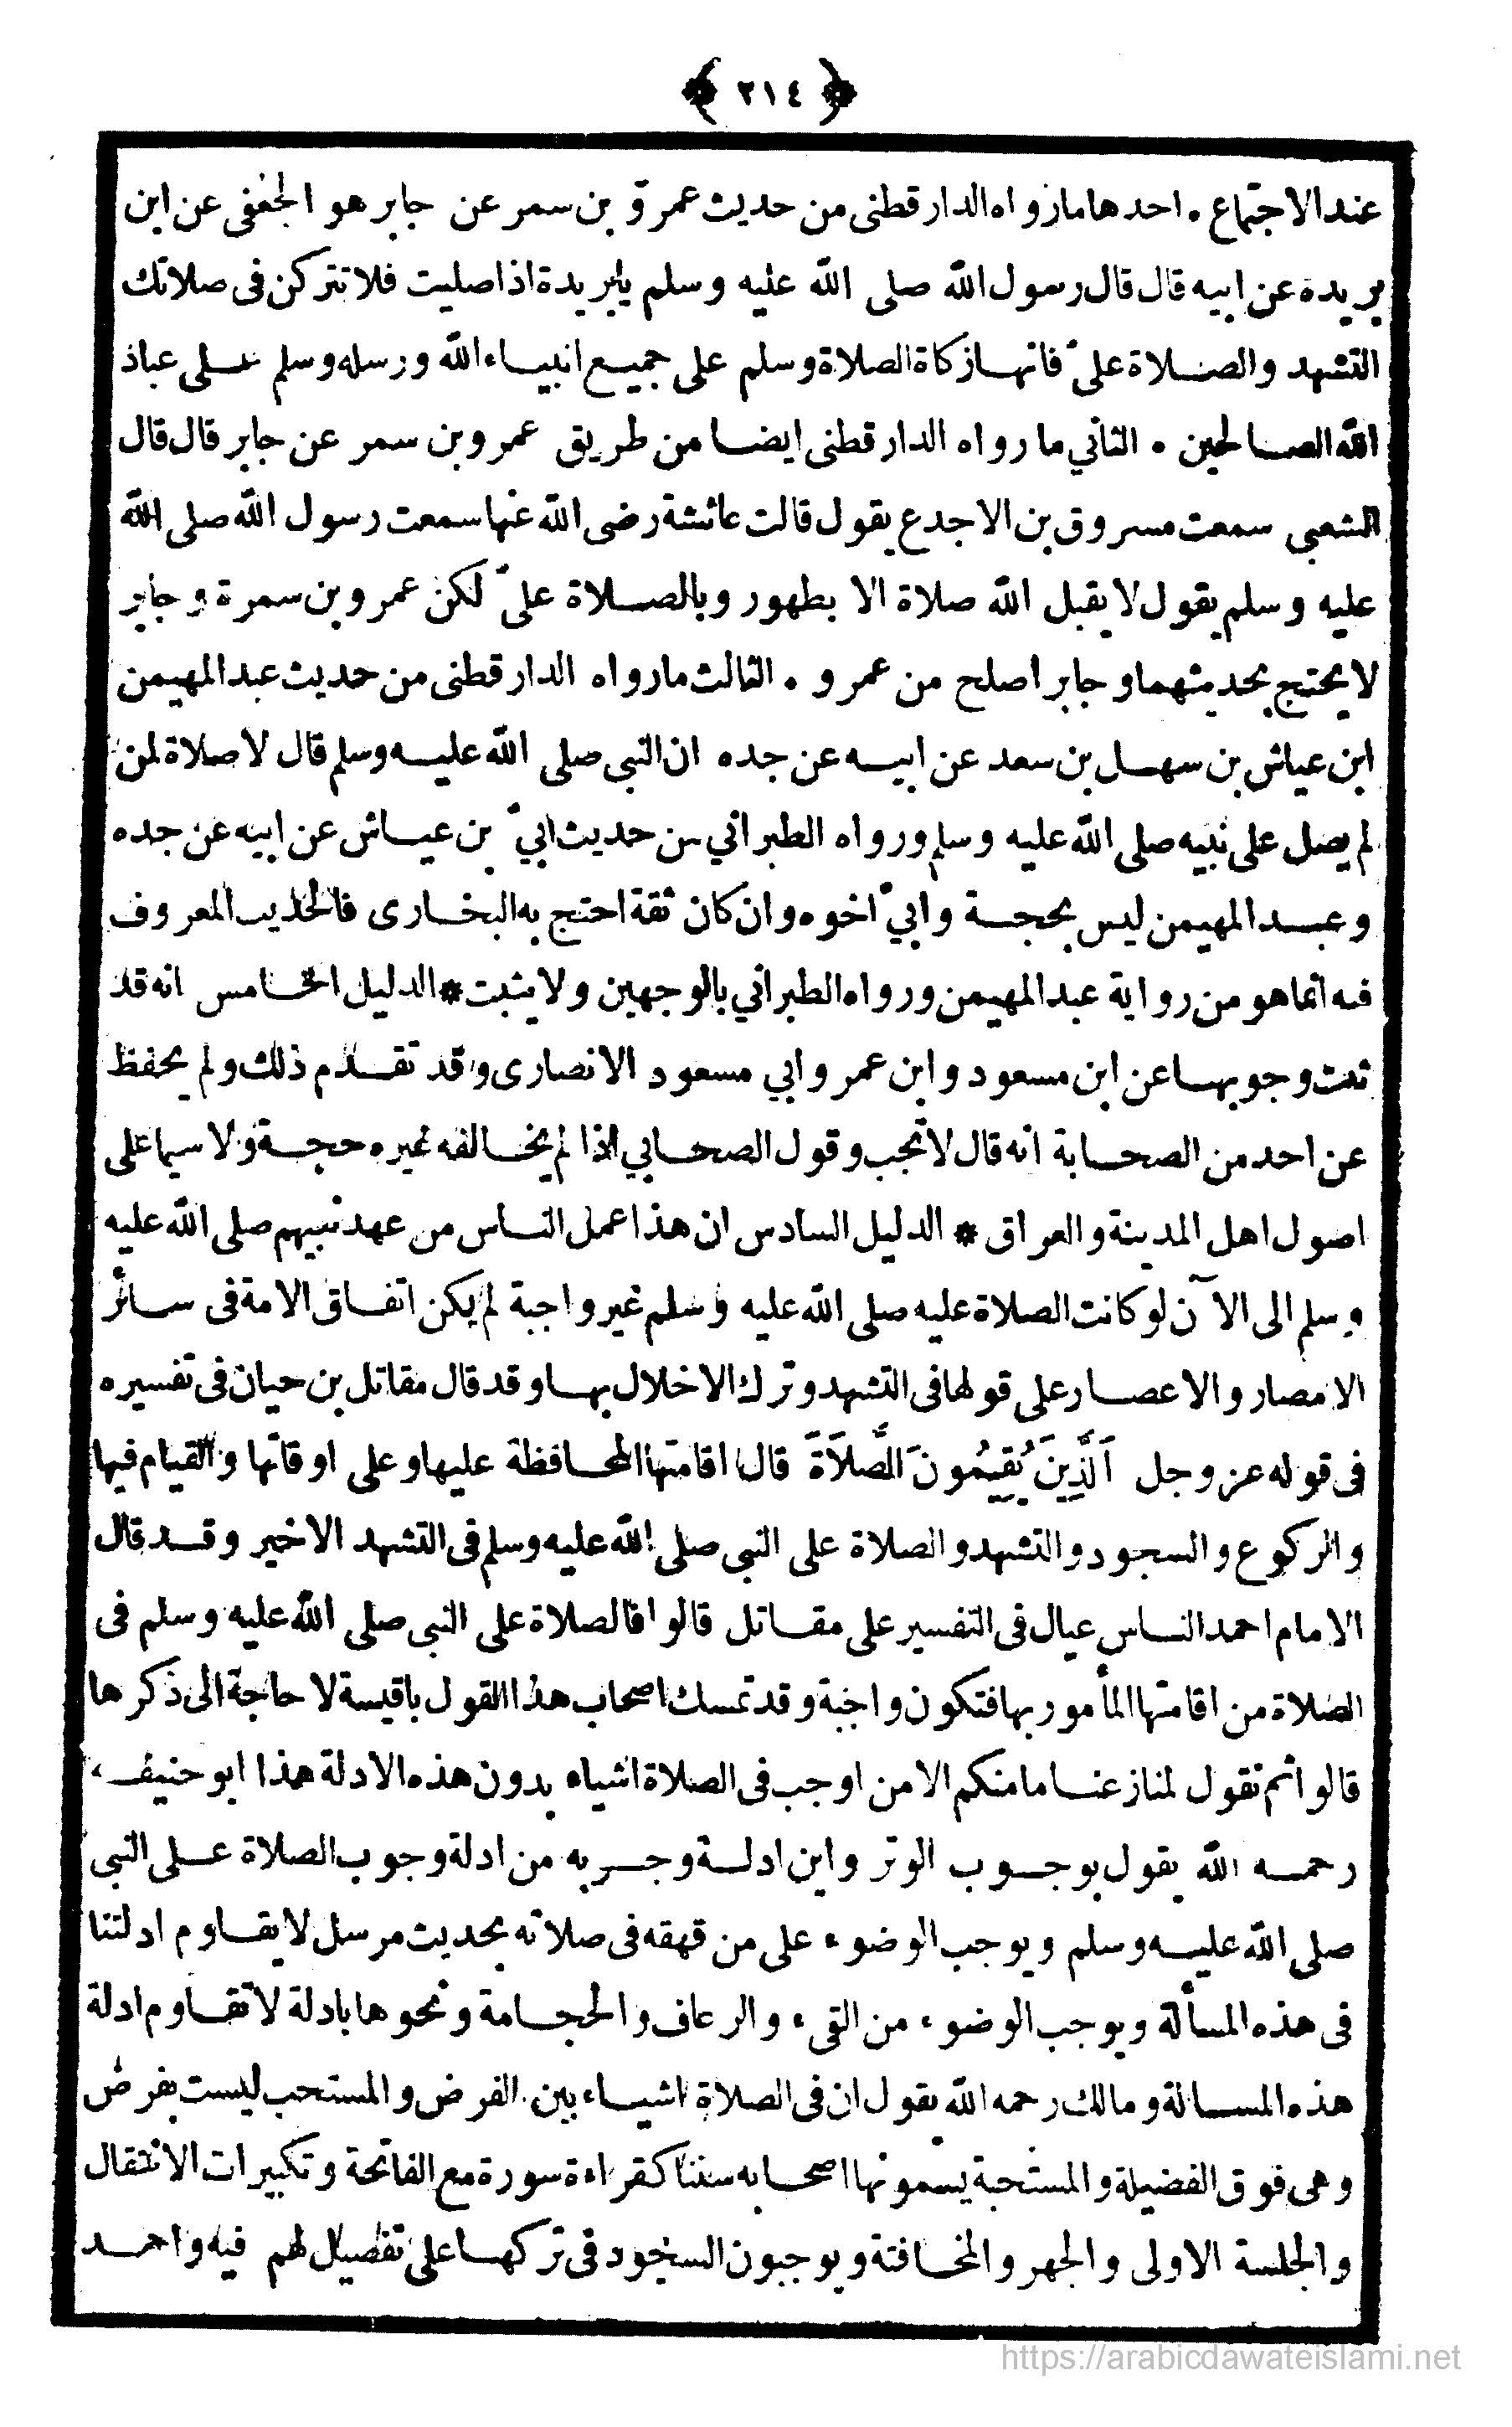 ﴿ ٢١٤ ﴾
عند الاجتماع • احدها ما رواه الدار قطنى من حديث عمرو بن سمر عن جابر هو الجعفى عن ابن
بريدة عن ابيه قال قال رسول الله صلى الله عليه وسلم يابريدة اذا صليت فلا تتركن فى صلاتك
التشهد والصلاة علىّ فانها زكاة الصلاة وسلم على جميع انبياء الله ورسله وسلم على عباد
الله الصالحين • الثاني ما رواه الدار قطنى ايضا من طريق عمرو بن سمر عن جابر قال قال
الشعبي سمعت مسروق بن الاجدع يقول قالت عائشة رضى الله عنها سمعت رسول الله صلى الله
عليه وسلم يقول لا يقبل الله صلاة الا بطهور وبالصلاة علىّ لكن عمرو بن سمرة وجابر
لا يحتج بحديثهما وجابر اصلح من عمرو • الثالث ما رواه الدار قطنى من حديث عبد المهيمن
ابن عياش بن سهل بن سعد عن ابيه عن جده ان النبي صلى الله عليه وسلم قال لا صلاة لمن
لم يصل على نبيه صلى الله عليه وسلم ورواه الطبراني من حديث ابيّ بن عياش عن ابيه عن جده
وعبد المهيمن ليس بحجة وابيّ اخوه وان كان ثقة احتج به البخارى فالحديث المعروف
فيه انما هو من رواية عبد المهيمن ورواه الطبراني بالوجهين ولا يثبت * الدليل الخامس انه قد
ثبت وجوبها عن ابن مسعود وابن عمر وابي مسعود الانصارى وقد تقدم ذلك ولم يحفظ
عن احد من الصحابة انه قال لا تجب وقول الصحابي اذا لم يخالفه غيره حجة ولا سيما على
اصول اهل المدينة والعراق * الدليل السادس ان هذا عمل الناس من عهد نبيهم صلى الله عليه
وسلم الى الآن لو كانت الصلاة عليه صلى الله عليه وسلم غير واجبة لم يكن اتفاق الامة فى سائر
الامصار والاعصار على قولها فى التشهد وترك الاخلال بها وقد قال مقاتل بن حيان فى تفسيره
فى قوله عز وجل اَلَّذِينَ يُقِيمُونَ الصَّلَاةَ قال اقامتها المحافظة عليها وعلى اوقاتها والقيام فيها
والركوع والسجود والتشهد والصلاة على النبي صلى الله عليه وسلم فى التشهد الاخير وقد قال
الامام احمد الناس عيال فى التفسير على مقاتل قالوا فالصلاة على النبي صلى الله عليه وسلم فى
الصلاة من اقامتها المأمور بها فتكون واجبة وقد تمسك اصحاب هذا القول باقيسة لا حاجة الى ذكرها
قالوا ثم نقول لمنازعنا ما منكم الا من اوجب فى الصلاة اشياء بدون هذه الادلة هذا ابو حنيفة
رحمه الله يقول بوجوب الوتر واين ادلة وجوبه من ادلة وجوب الصلاة على النبي
صلى الله عليه وسلم ويوجب الوضوء على من قهقه فى صلاته بحديث مرسل لا يقاوم ادلتنا
فى هذه المسألة ويوجب الوضوء من القىء والرعاف والحجامة ونحوها بادلة لا تقاوم ادلة
هذه المسالة ومالك رحمه الله يقول ان فى الصلاة اشياء بين الفرض والمستحب ليست بفرض
وهى فوق الفضيلة والمستحبة يسمونها اصحابه سننا كقراءة سورة مع الفاتحة وتكبيرات الانتقال
والجلسة الاولى والجهر والمخافتة ويوجبون السجود فى تركها على تفصيل لهم فيه واحمد
https://arabicdawateislami.net